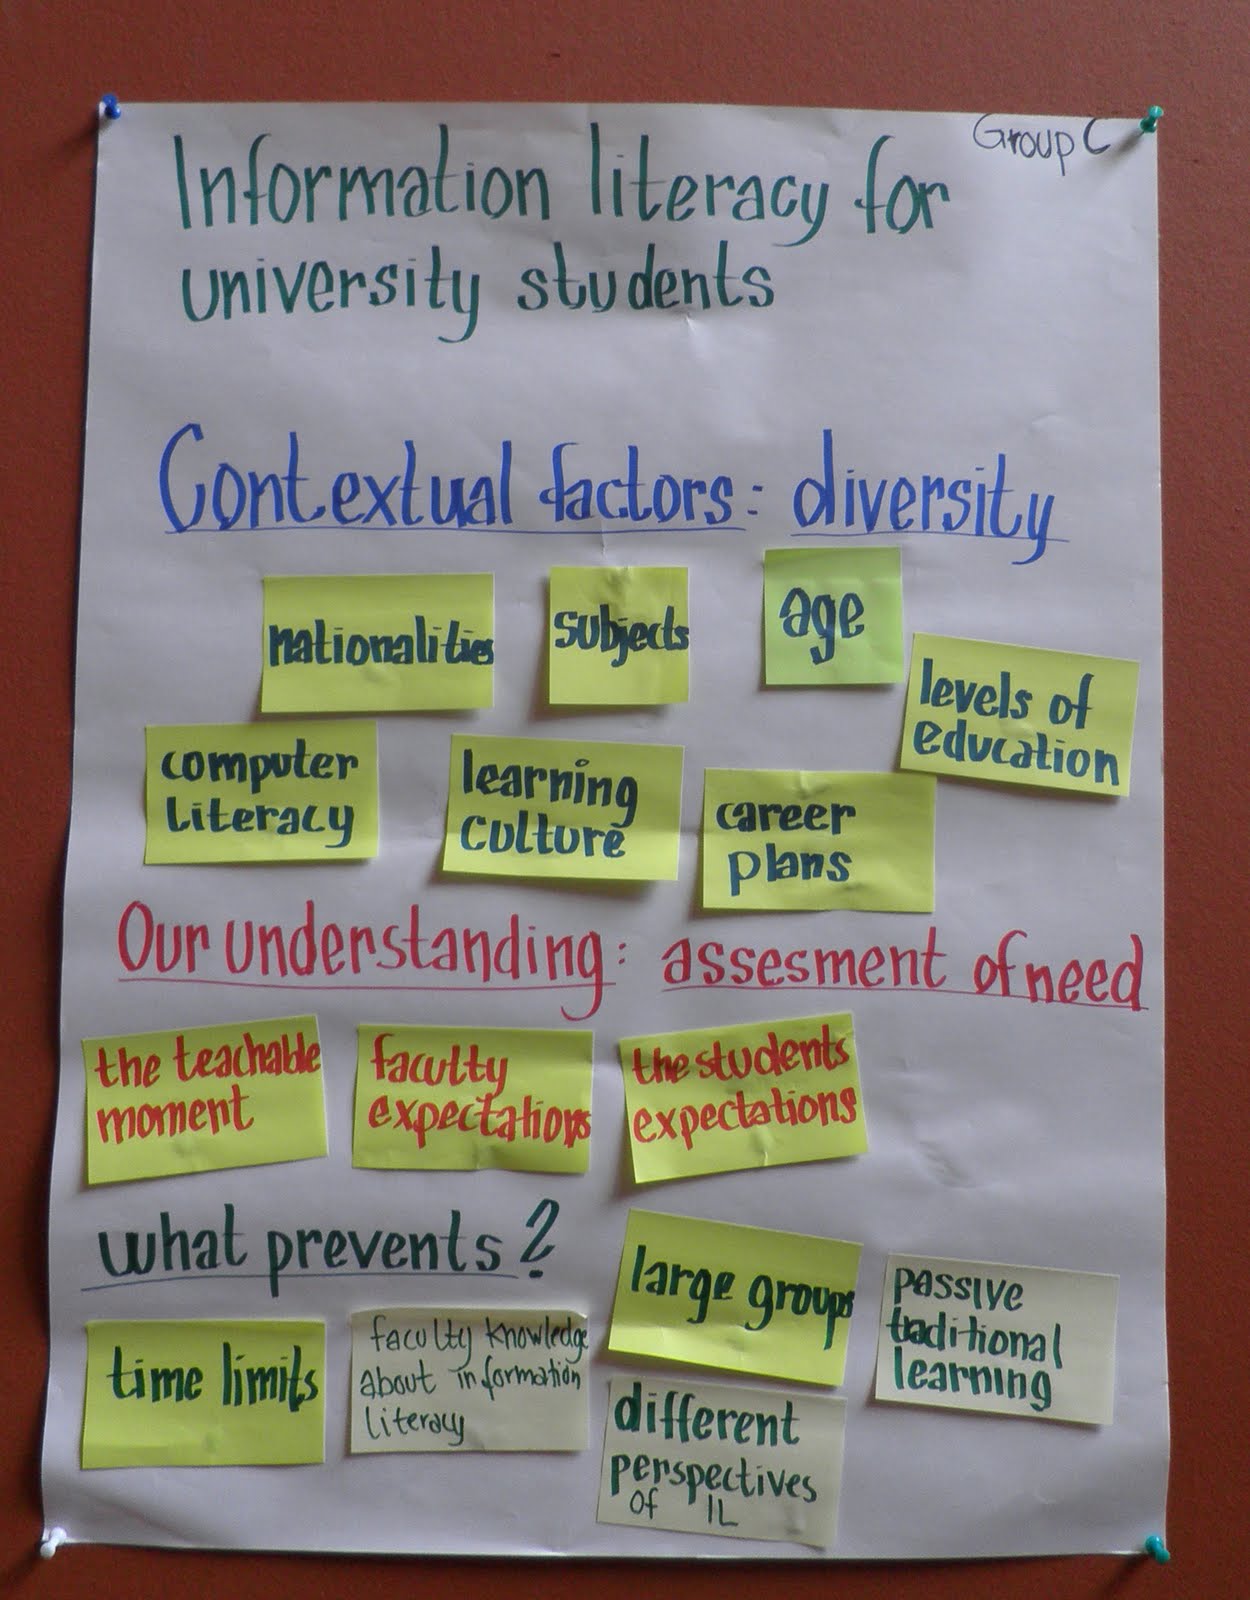 Group C
Information literacy for
university students
Contextual factors: diversity
nationalities
subjects
age
levels of
education
computer
literacy
learning
culture
career
plans
Our understanding: assesment of need
the teachable
moment
faculty
expectations
the students
expectations
what prevents?
time limits
faculty knowledge
about information
literacy
large groups
different
perspectives
of IL
passive
traditional
learning